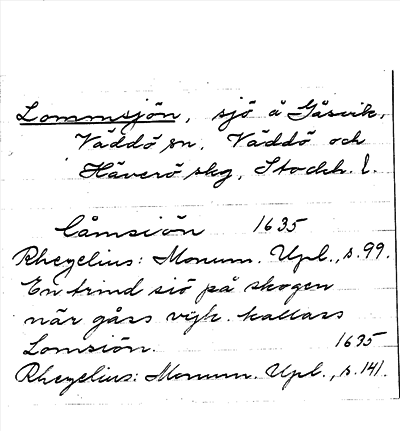 Lommsjön, sjö å Gåsvik,
Väddö sn, Väddö och
Häverö skg, Stockh. l.
Låmsiön 1635
Rhezelius: Monum. Upl., s. 99.
En trind siö på skogen
när gåss vijk kallass
Lomsiön. 1635
Rhezelius: Monum. Upl., s. 141.